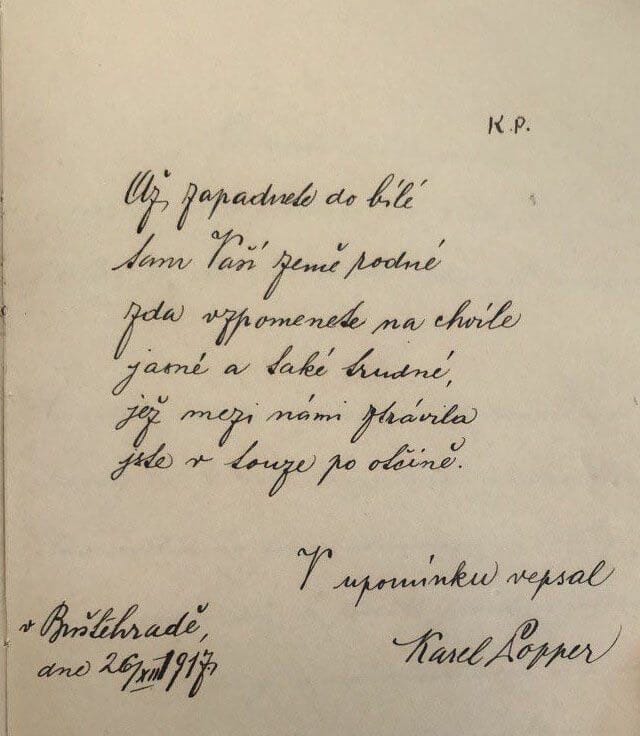 K.P.
Až zapadnete do bílé
tam Vaší země rodné
zda vzpomenete na chvíle
jasné a také trudné,
jež mezi námi ztrávila
jste v touze po otčině.
V upomínku vepsal
Karel Popper
v Buštěhradě,
dne 26/XII 1917